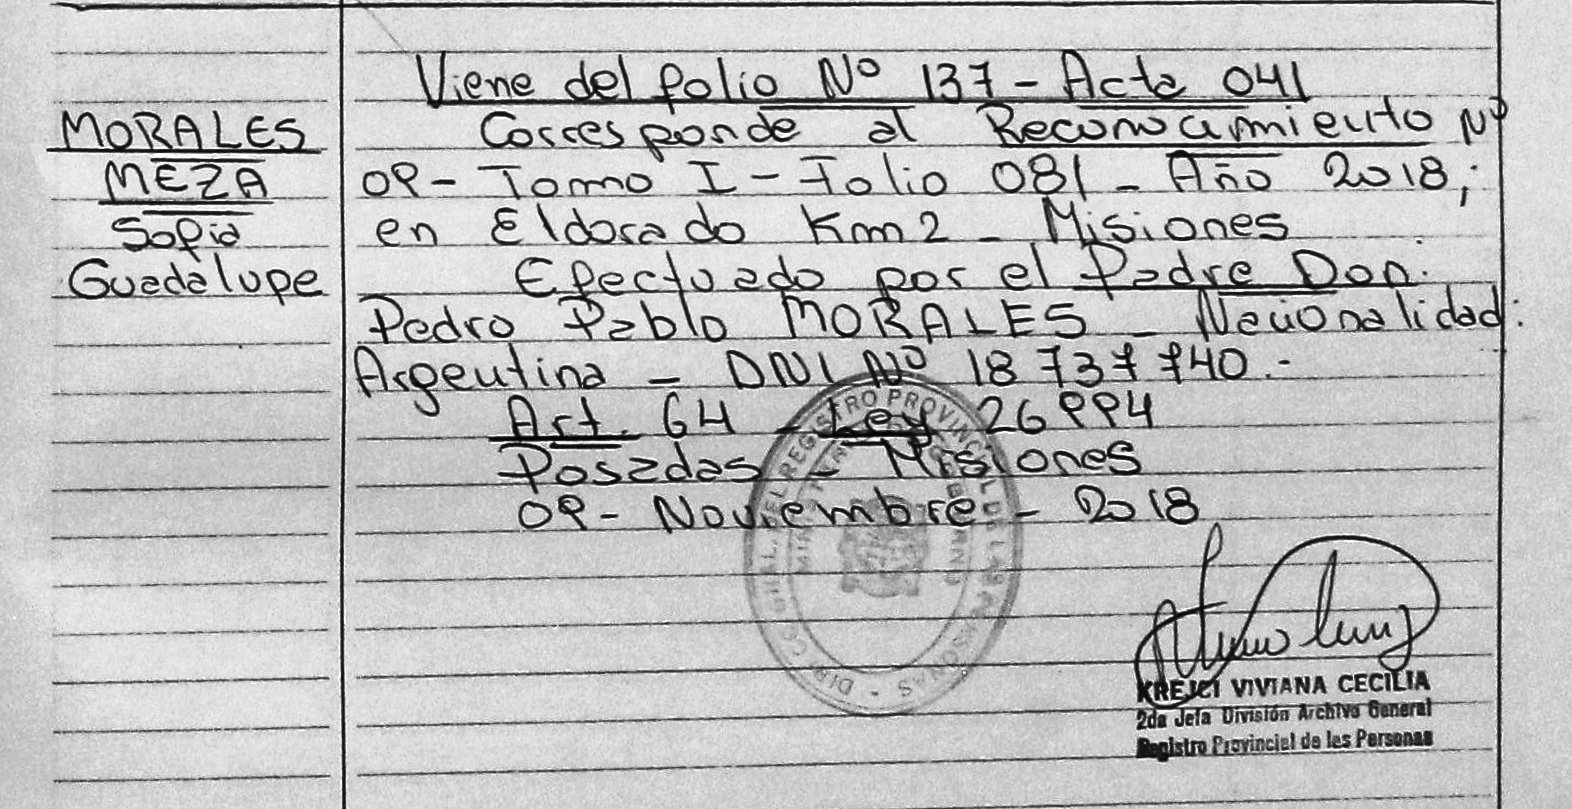 Viene del folio Nº 137 - Acta 041
MORALES
MEZA
Sofia
Guadalupe
Corresponde al Reconocimiento Nº
09 - Tomo I - Folio 081 - Año 2018;
en Eldorado Km2 - Misiones
Efectuado por el Padre Don:
Pedro Pablo MORALES - Nacionalidad:
Argentina - DNI Nº 18 737 740.-
Art. 64 - Ley 26994
Posadas - Misiones
09 - Noviembre - 2018
DIREC GRAL. DEL REGISTRO PROVINCIAL DE LAS PERSONAS
KREJCI VIVIANA CECILIA
2da Jefa División Archivo General
Registro Provincial de las Personas